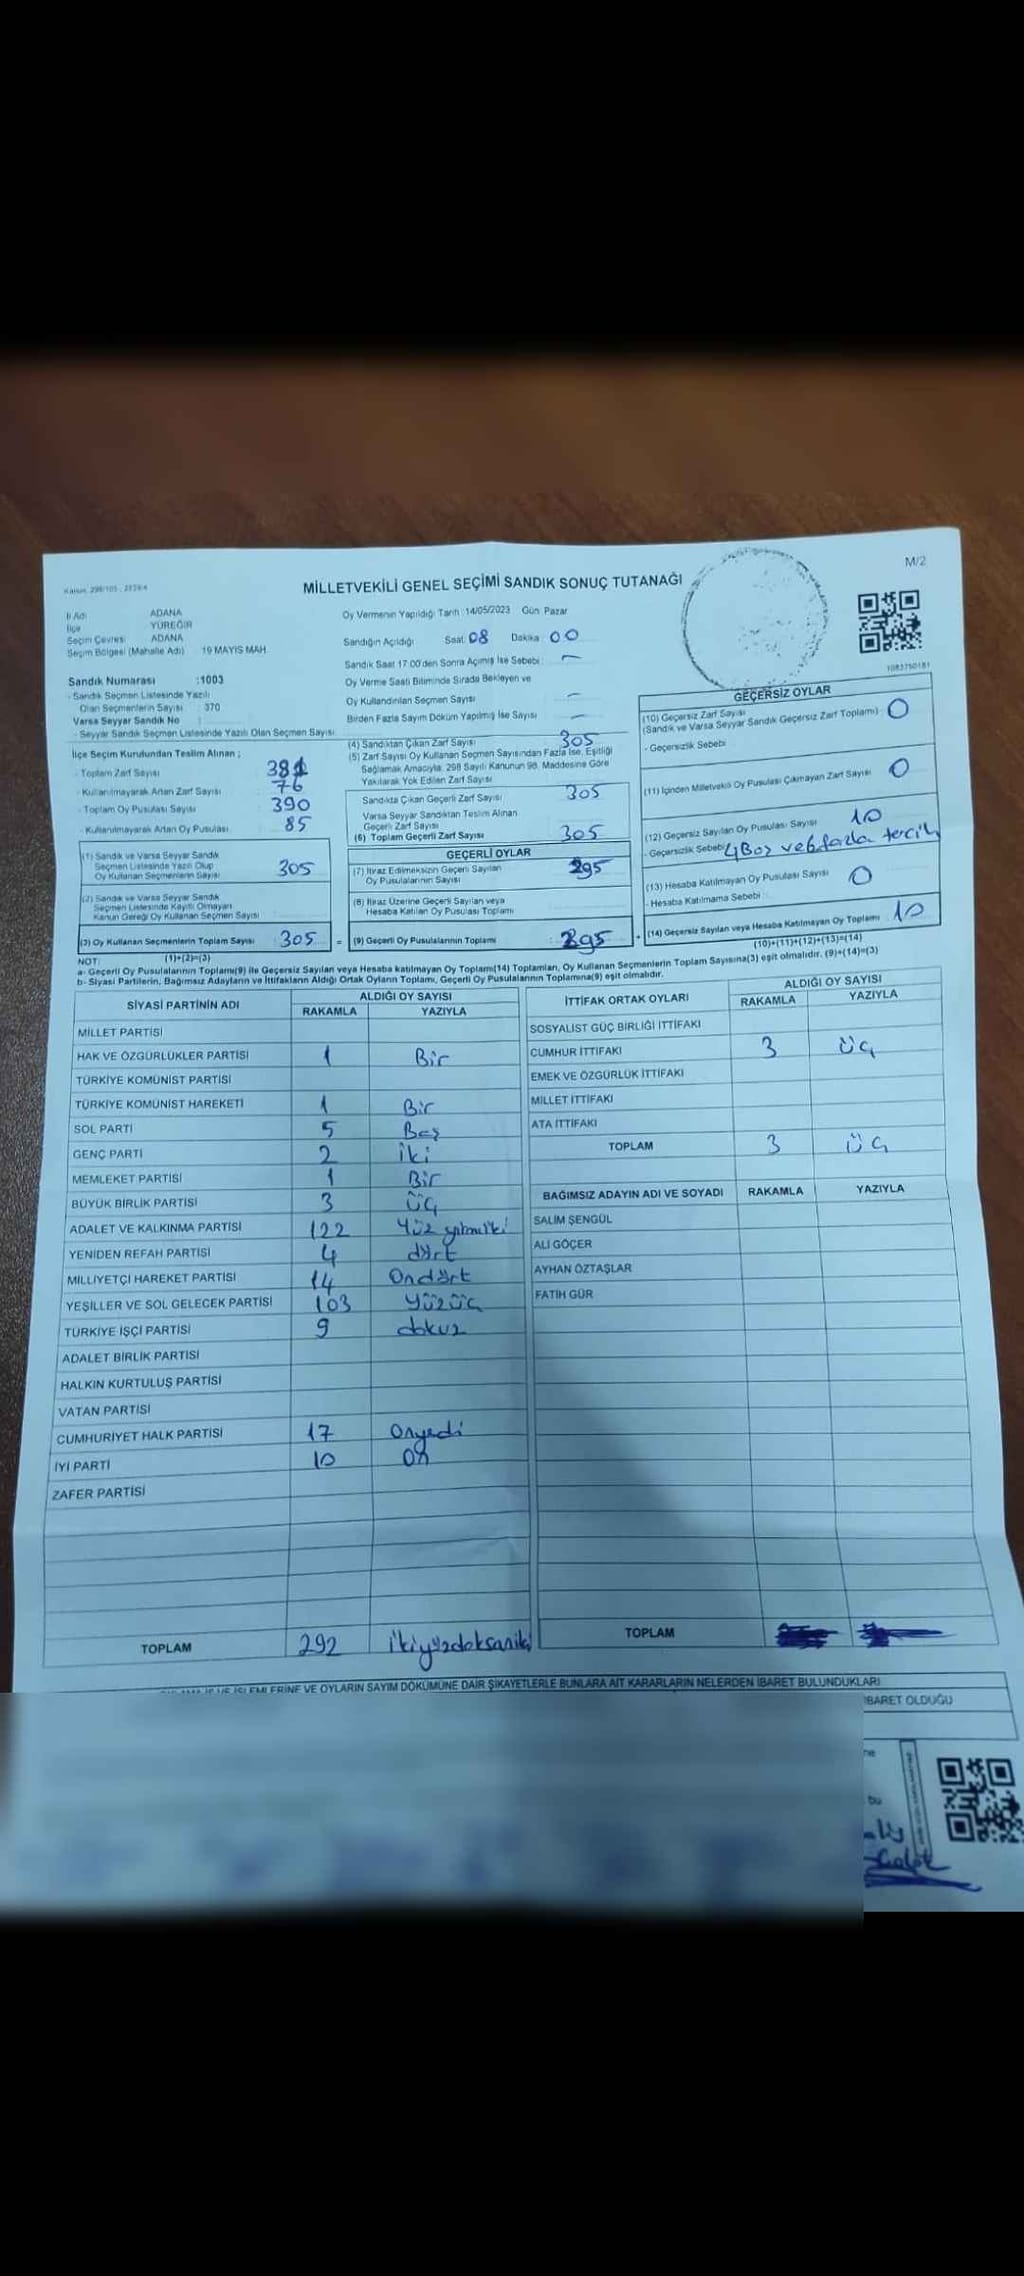 Kanun: 298/105 , 2839/4
MİLLETVEKİLİ GENEL SEÇİMİ SANDIK SONUÇ TUTANAĞI
M/2
İl Adı ADANA
İlçe YÜREĞİR
Seçim Çevresi ADANA
Seçim Bölgesi (Mahalle Adı) 19 MAYIS MAH.
Sandık Numarası :1003
- Sandık Seçmen Listesinde Yazılı
Olan Seçmenlerin Sayısı : 370
Varsa Seyyar Sandık No :
- Seyyar Sandık Seçmen Listesinde Yazılı Olan Seçmen Sayısı
İlçe Seçim Kurulundan Teslim Alınan ;
- Toplam Zarf Sayısı 381
- Kullanılmayarak Artan Zarf Sayısı 76
- Toplam Oy Pusulası Sayısı 390
- Kullanılmayarak Artan Oy Pusulası 85
(1) Sandık ve Varsa Seyyar Sandık
Seçmen Listesinde Yazılı Olup
Oy Kullanan Seçmenlerin Sayısı 305
(2) Sandık ve Varsa Seyyar Sandık
Seçmen Listesinde Kayıtlı Olmayan
Kanun Gereği Oy Kullanan Seçmen Sayısı
(3) Oy Kullanan Seçmenlerin Toplam Sayısı 305 =
Oy Vermenin Yapıldığı Tarih :14/05/2023 Gün: Pazar
Sandığın Açıldığı Saat: 08 Dakika: 00
Sandık Saat 17:00'den Sonra Açımış İse Sebebi : –
Oy Verme Saati Bitiminde Sırada Bekleyen ve
Oy Kullandırılan Seçmen Sayısı –
Birden Fazla Sayım Döküm Yapılmış İse Sayısı –
(4) Sandıktan Çıkan Zarf Sayısı 305
(5) Zarf Sayısı Oy Kullanan Seçmen Sayısından Fazla İse, Eşitliği
Sağlamak Amacıyla, 298 Sayılı Kanunun 98. Maddesine Göre
Yakılarak Yok Edilen Zarf Sayısı
Sandıkta Çıkan Geçerli Zarf Sayısı 305
Varsa Seyyar Sandıktan Teslim Alınan
Geçerli Zarf Sayısı
(6) Toplam Geçerli Zarf Sayısı 305
GEÇERLİ OYLAR
(7) İtiraz Edilmeksizin Geçerli Sayılan
Oy Pusulalarının Sayısı 295
(8) İtiraz Üzerine Geçerli Sayılan veya
Hesaba Katılan Oy Pusulası Toplamı
(9) Geçerli Oy Pusulalarının Toplamı 295 +
1083750181
GEÇERSİZ OYLAR
(10) Geçersiz Zarf Sayısı
(Sandık ve Varsa Seyyar Sandık Geçersiz Zarf Toplamı) 0
- Geçersizlik Sebebi
(11) İçinden Milletvekili Oy Pusulası Çıkmayan Zarf Sayısı 0
(12) Geçersiz Sayılan Oy Pusulası Sayısı 10
- Geçersizlik Sebebi 4 Boş ve 6 fazla tercih
(13) Hesaba Katılmayan Oy Pusulası Sayısı 0
- Hesaba Katılmama Sebebi :
(14) Geçersiz Sayılan veya Hesaba Katılmayan Oy Toplamı 10
NOT: (1)+(2)=(3) (10)+(11)+(12)+(13)=(14)
a- Geçerli Oy Pusulalarının Toplamı(9) ile Geçersiz Sayılan veya Hesaba katılmayan Oy Toplamı(14) Toplamları, Oy Kullanan Seçmenlerin Toplam Sayısına(3) eşit olmalıdır. (9)+(14)=(3)
b- Siyasi Partilerin, Bağımsız Adayların ve İttifakların Aldığı Ortak Oyların Toplamı, Geçerli Oy Pusulalarının Toplamına(9) eşit olmalıdır.
SİYASİ PARTİNİN ADI ALDIĞI OY SAYISI
RAKAMLA YAZIYLA
MİLLET PARTİSİ
HAK VE ÖZGÜRLÜKLER PARTİSİ 1 Bir
TÜRKİYE KOMÜNİST PARTİSİ
TÜRKİYE KOMÜNİST HAREKETİ 1 Bir
SOL PARTİ 5 Beş
GENÇ PARTİ 2 iki
MEMLEKET PARTİSİ 1 Bir
BÜYÜK BİRLİK PARTİSİ 3 üç
ADALET VE KALKINMA PARTİSİ 122 Yüz yirmiiki
YENİDEN REFAH PARTİSİ 4 dört
MİLLİYETÇİ HAREKET PARTİSİ 14 Ondört
YEŞİLLER VE SOL GELECEK PARTİSİ 103 Yüzüç
TÜRKİYE İŞÇİ PARTİSİ 9 dokuz
ADALET BİRLİK PARTİSİ
HALKIN KURTULUŞ PARTİSİ
VATAN PARTİSİ
CUMHURİYET HALK PARTİSİ 17 Onyedi
İYİ PARTİ 10 On
ZAFER PARTİSİ
TOPLAM 292 ikiyüzdoksaniki
İTTİFAK ORTAK OYLARI ALDIĞI OY SAYISI
RAKAMLA YAZIYLA
SOSYALİST GÜÇ BİRLİĞİ İTTİFAKI
CUMHUR İTTİFAKI 3 üç
EMEK VE ÖZGÜRLÜK İTTİFAKI
MİLLET İTTİFAKI
ATA İTTİFAKI
TOPLAM 3 üç
BAĞIMSIZ ADAYIN ADI VE SOYADI RAKAMLA YAZIYLA
SALİM ŞENGÜL
ALİ GÖÇER
AYHAN ÖZTAŞLAR
FATİH GÜR
TOPLAM
İŞLEMLERİNE VE OYLARIN SAYIM DÖKÜMÜNE DAİR ŞİKAYETLERLE BUNLARA AİT KARARLARIN NELERDEN İBARET BULUNDUKLARI
İBARET OLDUĞU